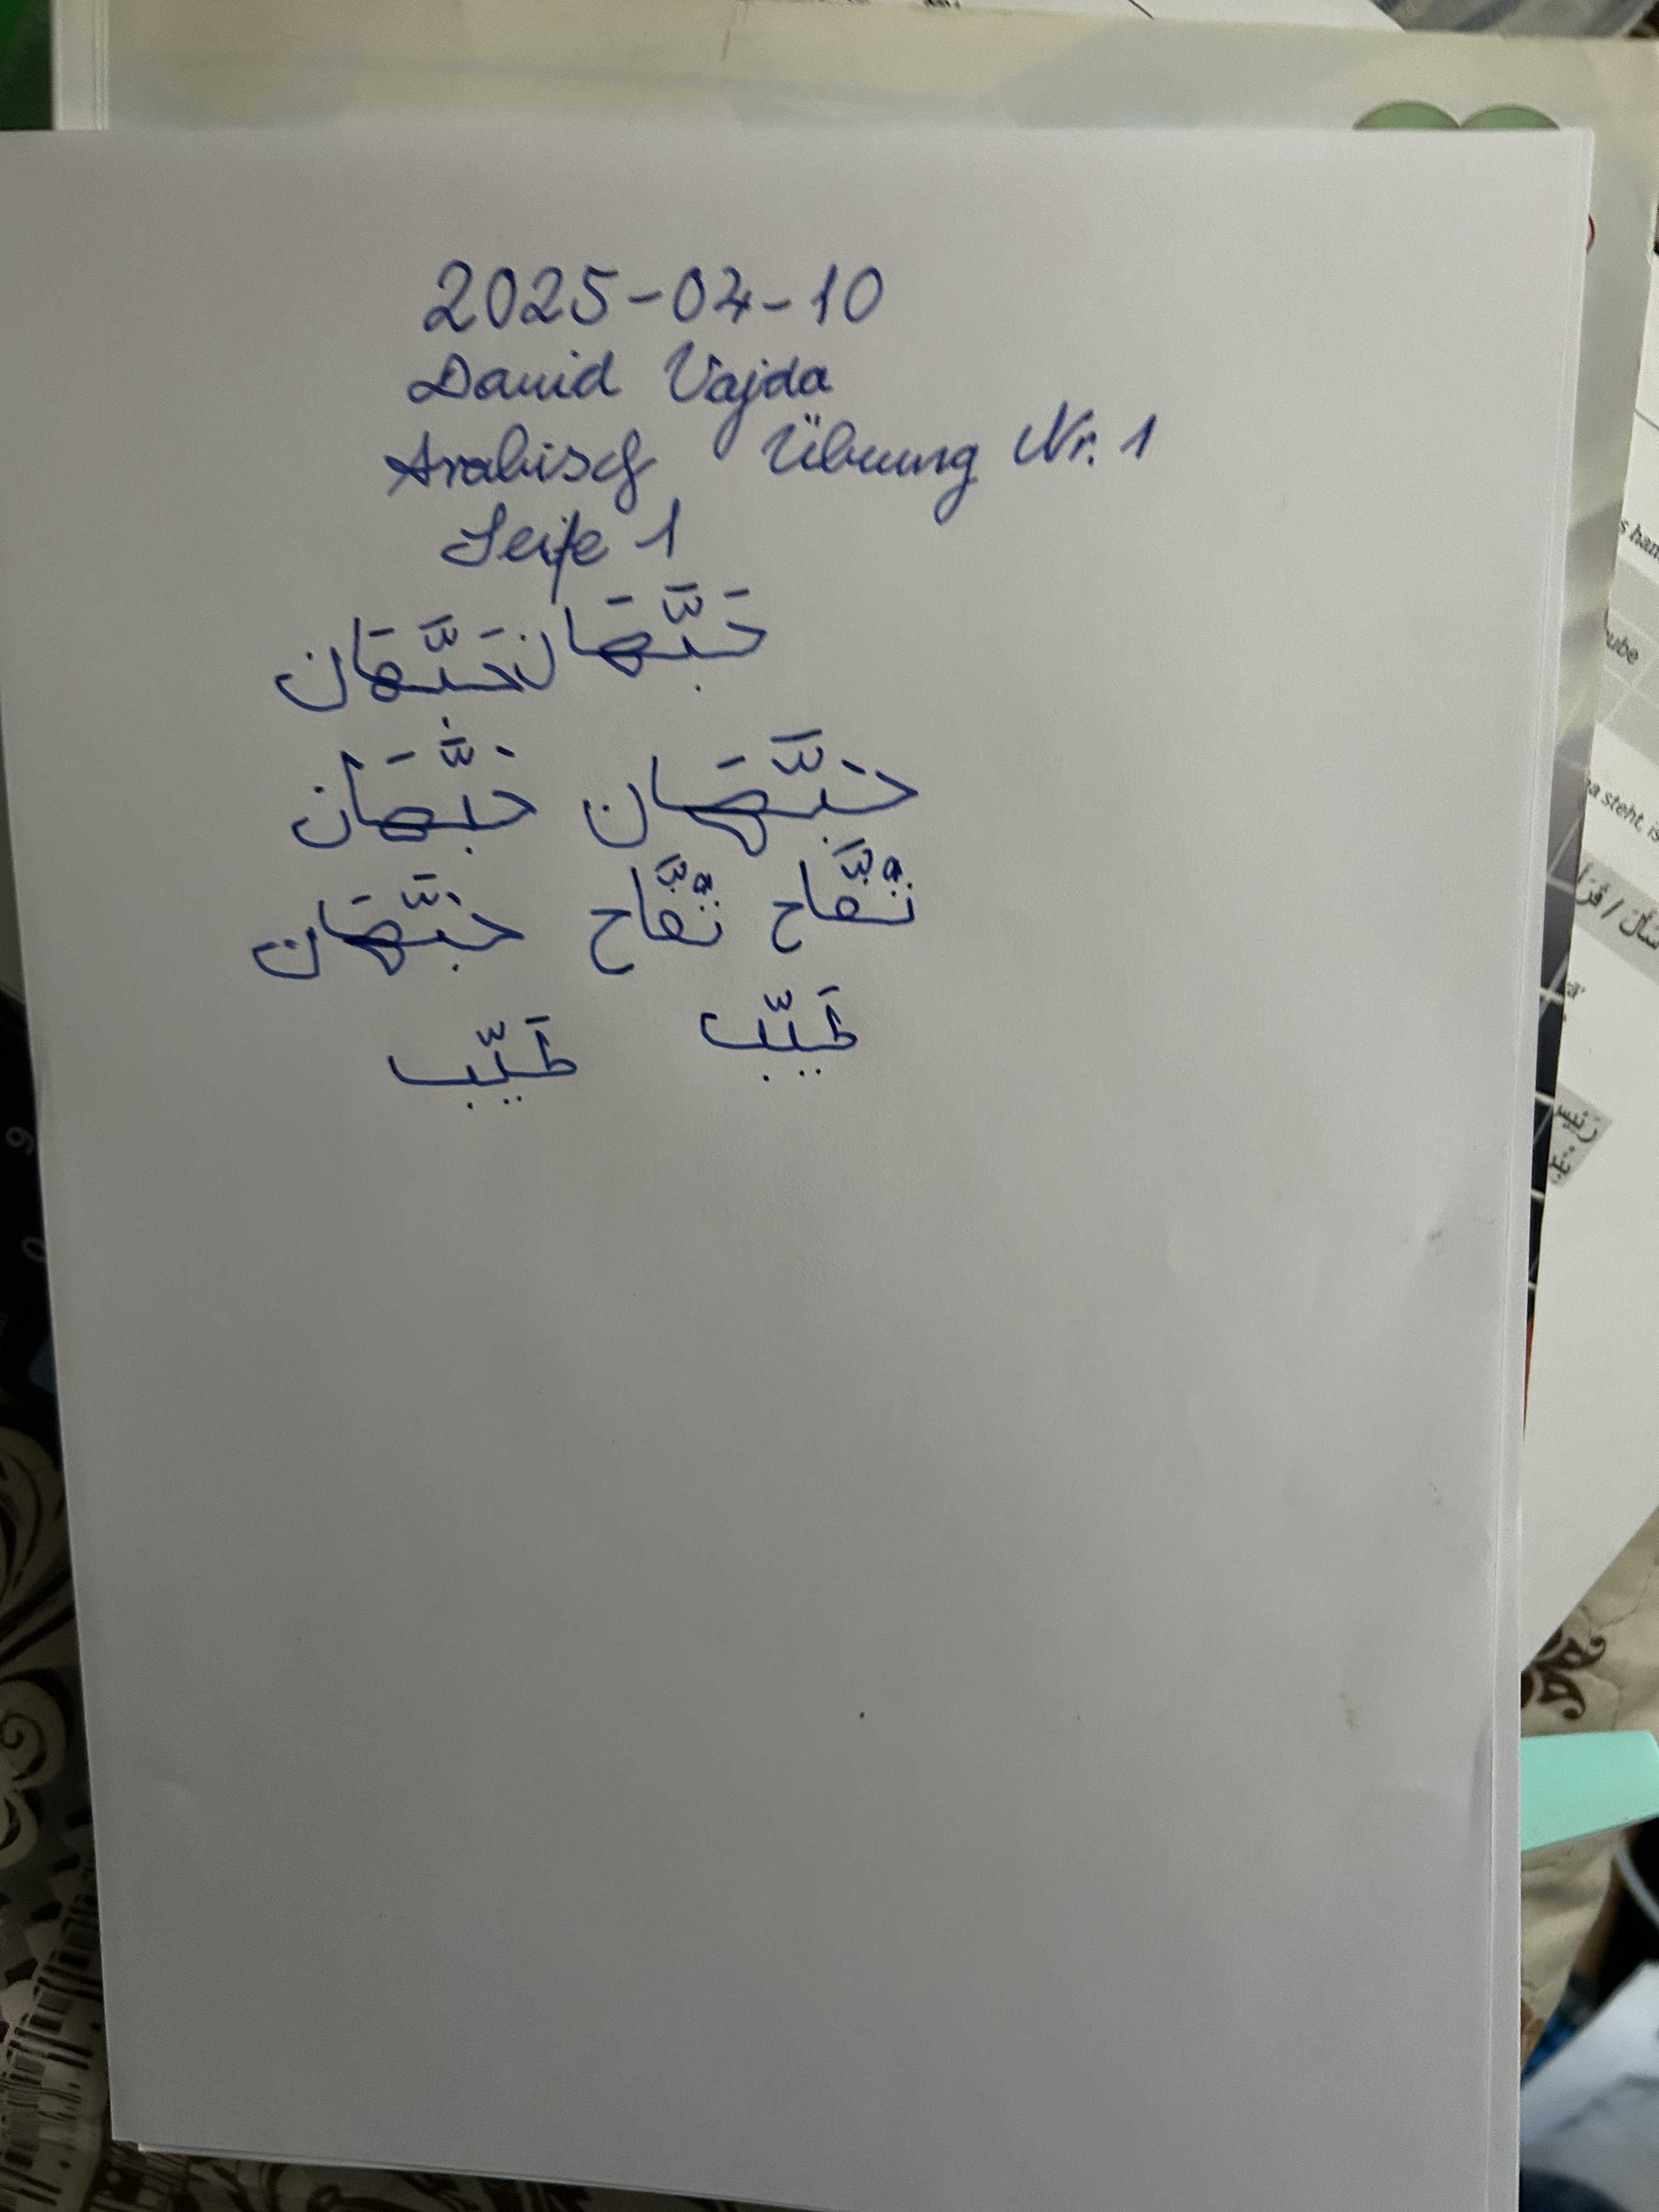 2025-04-10
David Vajda
Arabisch Übung Nr. 1
Seite 1
حَبَّهَان حَبَّهَان
حَبَّهَان حَبَّهَان
تُفَّاح تُفَّاح حَبَّهَان
طَيّب طَيّب
s han
ube
na steht, is
سَأَلَ / قَرَأَ
رَئِيس
9
0